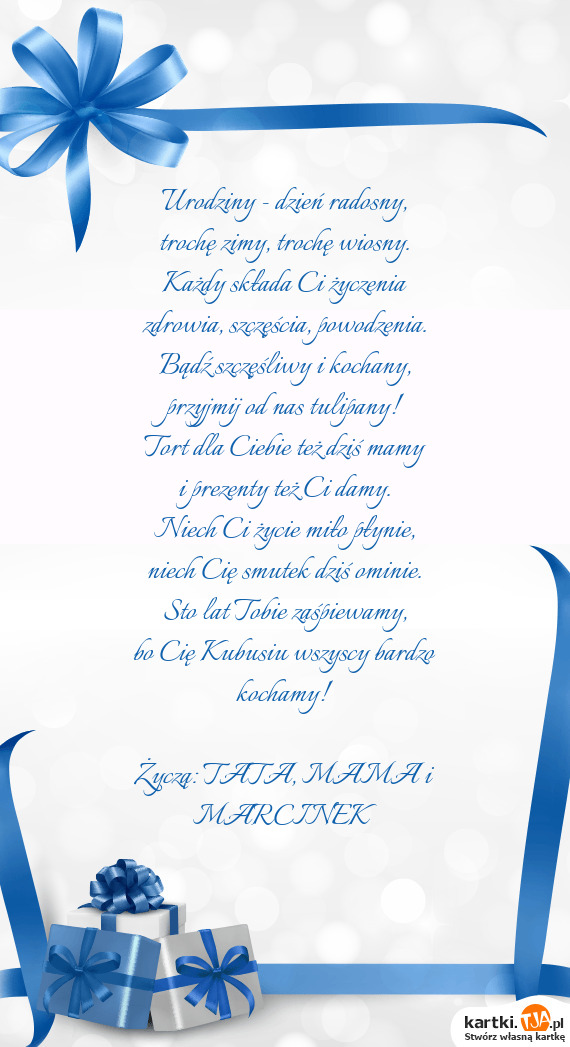 Urodziny - dzień radosny,
trochę zimy, trochę wiosny.
Każdy składa Ci życzenia
zdrowia, szczęścia, powodzenia.
Bądź szczęśliwy i kochany,
przyjmij od nas tulipany!
Tort dla Ciebie też dziś mamy
i prezenty też Ci damy.
Niech Ci życie miło płynie,
niech Cię smutek dziś ominie.
Sto lat Tobie zaśpiewamy,
bo Cię Kubusiu wszyscy bardzo
kochamy!
Życzą: TATA, MAMA i
MARCINEK
kartki.TJA.pl
Stwórz własną kartkę